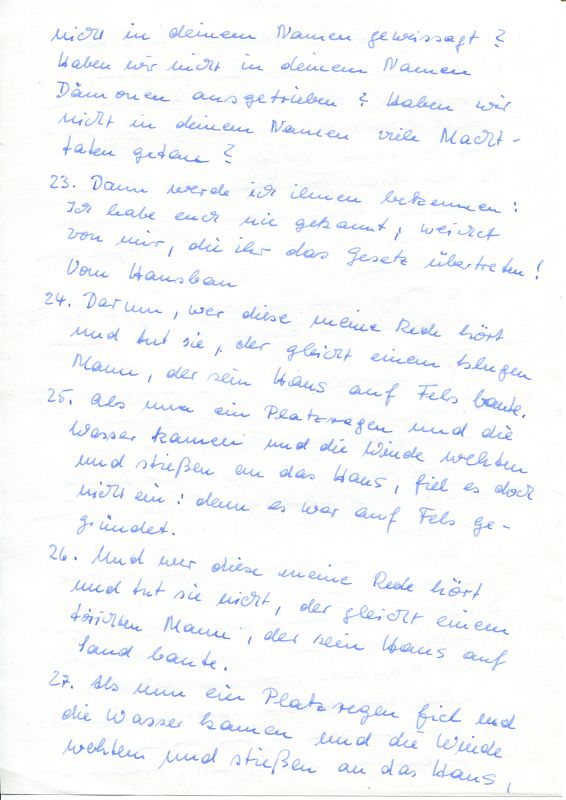 nicht in deinem Namen geweissagt?
Haben wir nicht in deinem Namen
Dämonen ausgetrieben? Haben wir
nicht in deinem Namen viele Macht-
taten getan?
23. Dann werde ich ihnen bekennen:
Ich habe euch nie gekannt; weichet
von mir, die ihr das Gesetz übertreten!
Vom Hausbau
24. Darum, wer diese meine Rede hört
und tut sie, der gleicht einem klugen
Mann, der sein Haus auf Fels baute.
25. Als nun ein Platzregen und die
Wasser kamen und die Winde wehten
und stießen an das Haus, fiel es doch
nicht ein: denn es war auf Fels ge-
gründet.
26. Und wer diese meine Rede hört
und tut sie nicht, der gleicht einem
törichten Mann, der sein Haus auf
Sand baute.
27. Als nun ein Platzregen fiel und
die Wasser kamen und die Winde
wehten und stießen an das Haus,